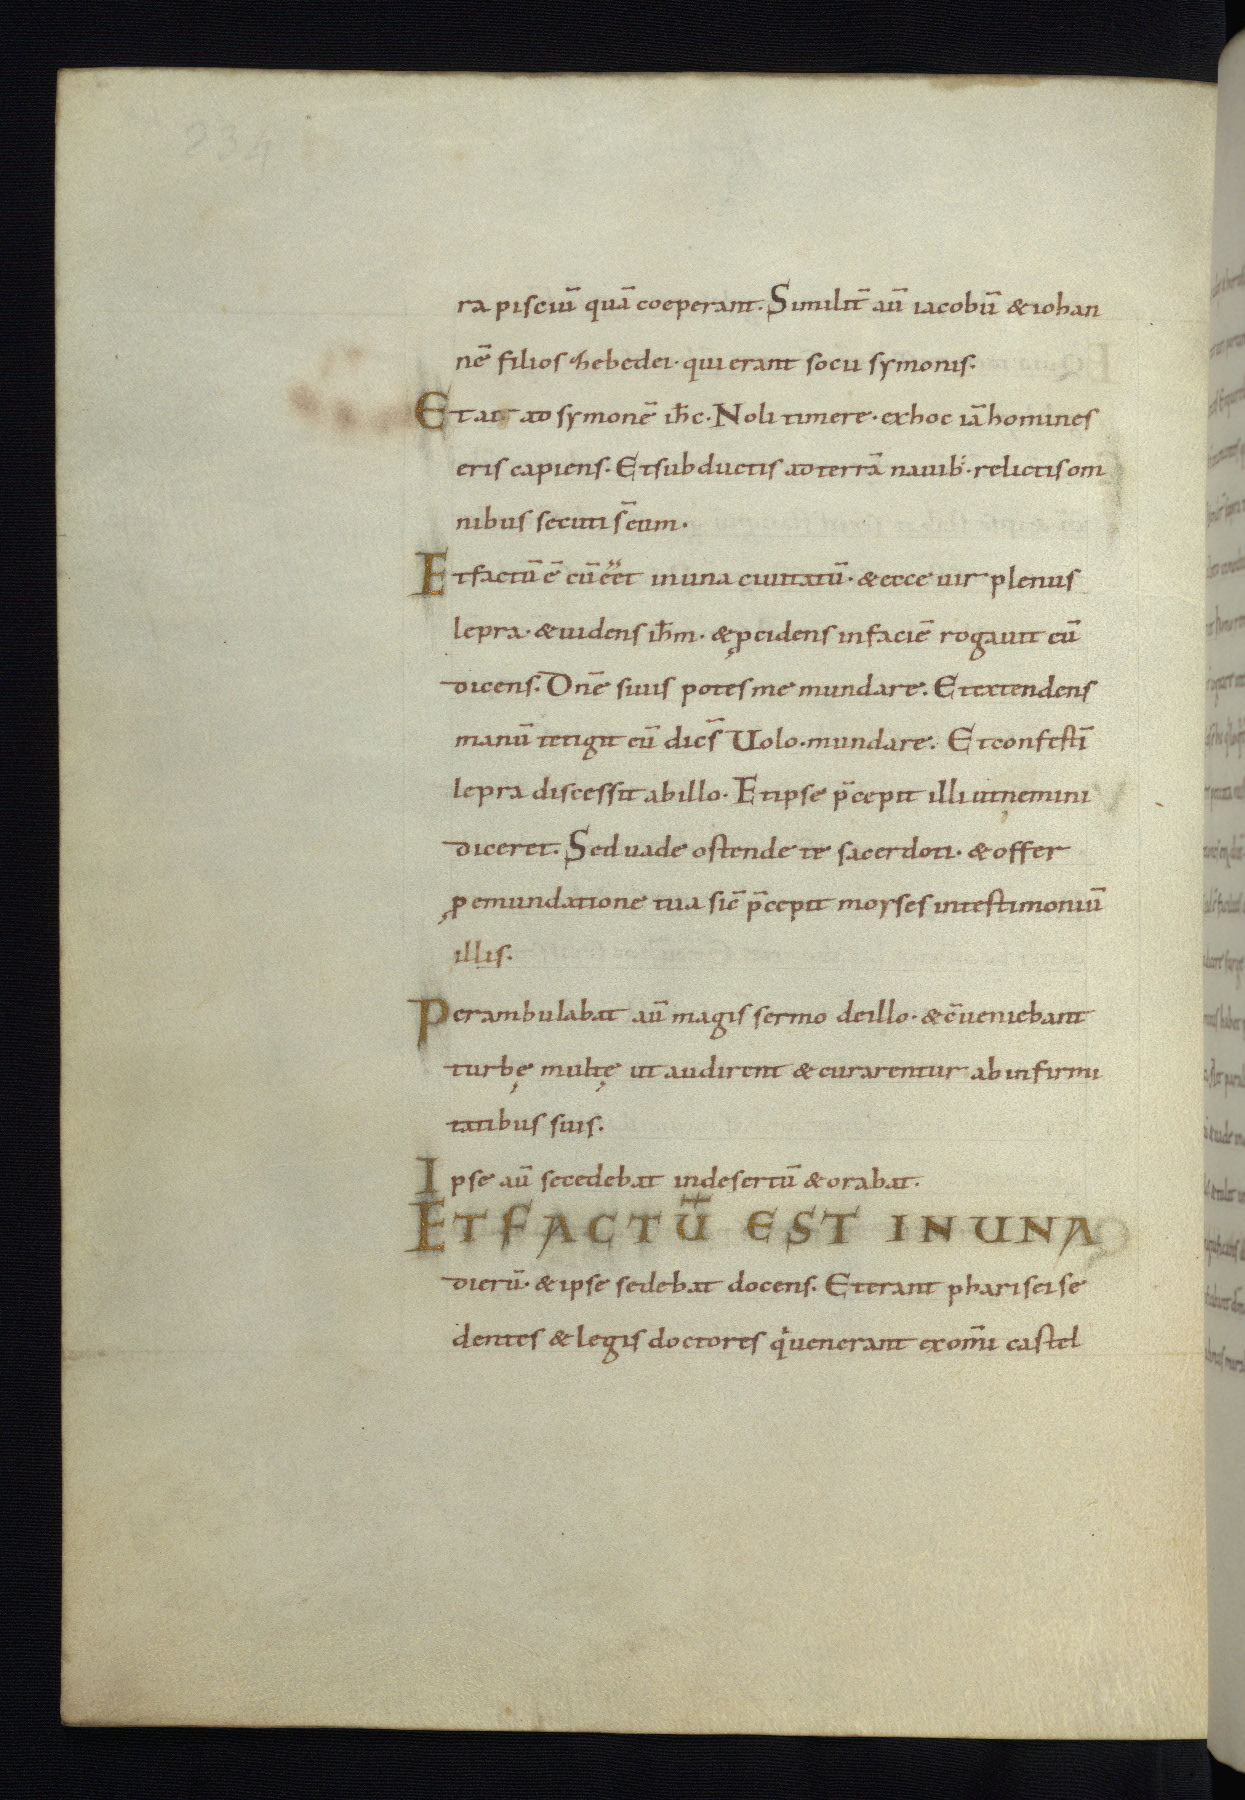 234
ra pisciū quā coeperant. Similit̄ aū iacobū & iohan
nē filios zhebedei· qui erant socii symonis.
Et ait ad symonē ih̄c· Noli timere· ex hoc iā homines
eris capiens. Et subductis ad terrā nauib;· relictis om
nibus secuti s̄ eum.
Et factū ē cū eēt in una ciuitatū· & ecce uir plenus
lepra· & uidens ih̄m· & ꝓcidens in faciē rogauit eū
dicens. Dnē si uis potes me mundare. Et extendens
manū tetigit eū dicēs Uolo· mundare. Et confestī
lepra discessit ab illo. Et ipse p̄cepit illi ut nemini
diceret. Sed uade ostende te sacerdoti· & offer
ꝓ emundatione tua sic̄ p̄cepit moyses in testimoniū
illis.
Perambulabat aū magis sermo de illo· & c̄ueniebant
turbę multę ut audirent & curarentur ab infirmi
tatibus suis.
Ipse aū secedebat in desertū & orabat.
ET FACTŪ EST IN UNA
dierū· & ipse sedebat docens. Et erant pharisei se
dentes & legis doctores q̇ uenerant ex om̄i castel